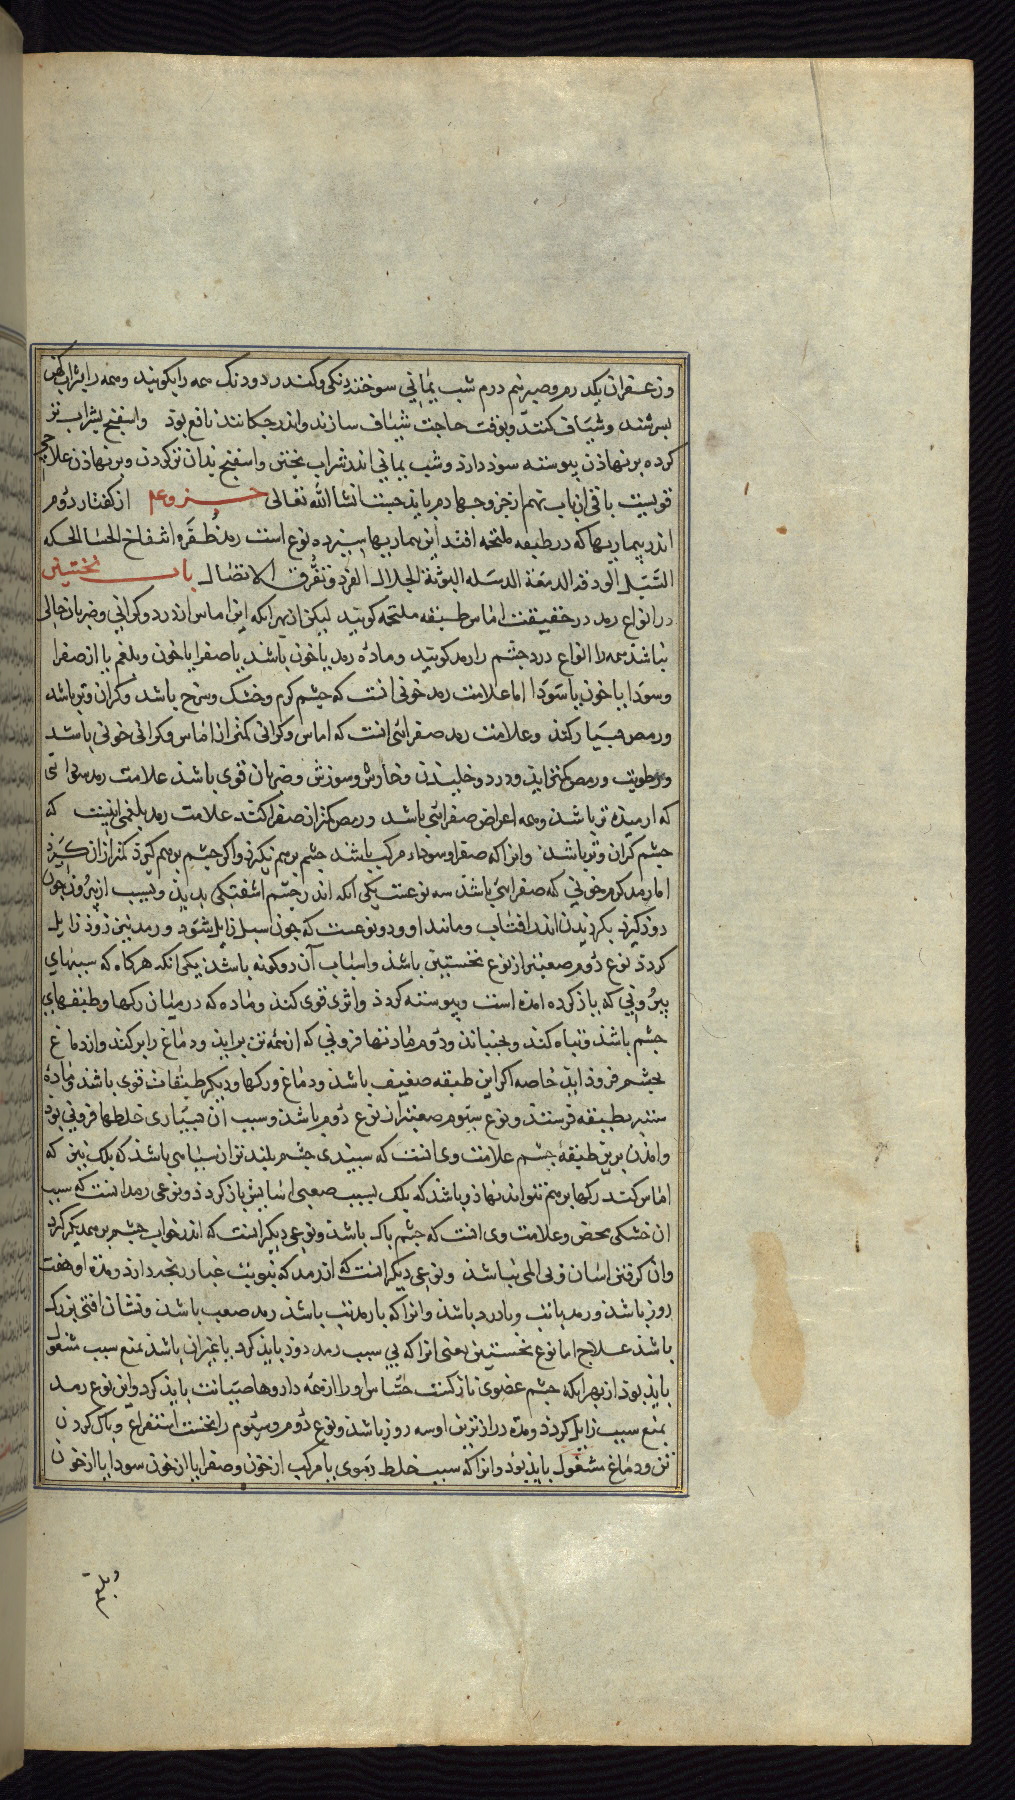 وزعفران یکدرم وصبر نیم درم شب یمانی سوخته دنکی وکندر دو دنک همه را بکوبند وهمه را بشراب کهن
بسرشند وشیاف کنند وبوقت حاجت شیاف سازند واندر چکانند نافع بوذ واسفنج بشراب تر
کرده برنهاذن پیوسته سوذ دارذ وشب یمانی اندر شراب پختن واسفنج بدان تر کردن وبرنهاذن علاجی
قویست باقی از باب نهم از جزو چهارم باید جست انشا الله تعالی جزو علم از کفتار دوم
اندر بیماریها که در طبقه ملتحمه افتد این بیماریها سیزده نوع است رمد طرفه انتفاخ الجسا الحکه
السبل الودقه الدمعة الدبیله التوثة تفرق الاتصال باب نخستین
در انواع رمد در حقیقت اماس طبقه ملتحمه کویند لیکن از بهر انکه این اماس از درد وکرانی وضربان خالی
نباشذ همه انواع درد چشم را رمد کویند وماده رمد یا خون باشد یا صفرا یا خون وبلغم یا از صفرا
وسودا یا خون یا سودا اما علامت رمد خونی انست که چشم کرم وخشک وسرخ باشد وکران
ورمص بسیار کند وعلامت رمد صفرائی انست که اماس وکرانی کمتر از اماس وکرانی خونی باشد
ورطوبت ورمص کمتر اید ودرد وخلیدن وخارش وسوزش وضربان قوی باشد علامت رمد سودائی
که ارمیذه تر باشد وهمه اعراض صفرائی باشد ورمص کمتر از صفرا کند علامت رمد بلغمی اینست که
چشم کران باشد وانرا که صفرا وسوداء مرکب باشد چشم برهم نکیرذ واکر چشم برهم کیرذ کمتر از ان کیرذ
اما رمد کرم خونی که صفرائی باشد سه نوعست یکی انکه اندر چشم اشفتکی پدید وسبب از بیرون چون
دوذ کرد بکردیدن اندر افتاب ومانند او ودو نوعست که چون سبب زایل شود ورمد نیز زوذ زایل
کردد نوع دوم صعبتر از نوع نخستین باشد واسباب آن دو کونه باشد یکی انکه هرکاه که سببهای
بیرونی که یاد کرده امده است وپیوسته کردد واثری قوی کند وماده که در میان رکها وطبقهای
چشم باشد تباه کند وبجنباند ودوم مادتها فزونی که از همه تن براید ودماغ را پر کند واز دماغ
بچشم فروذ اید خاصه اکر این طبقه ضعیف باشد ودماغ ورکها ودیکر طبقات قوی باشد وماده
بطبقه فرستد ونوع سیوم صعبتر از نوع دوم باشد وسبب ان بسیاری خلطها فزونی بوذ
وامدن برین طبقه چشم علامت وی انست که سبیدی چشم بلندتر از سیاهی باشد که پلک نیز که
اماس کند رکها برهم نتواند نهاذ وباشد که پلک بسبب صعبی باز کردد ونوعی رمد انست که سبب
ان خشکی محض وعلامت وی انست که چشم پاک باشد ونوعی دیکر انست که اندر خواب چشم برهم دیکر کیرد
وان کرفتن اسان وبی المی نباشد ونوعی دیکر انست که از رمد که بنوبت رنجه دارد ومدة او هفت
روز باشذ ورمد باتب وبا درد باشد وانرا که با رمد تب باشد رمد صعب باشد ونشان افتی بزرک
باشد علاج اما نوع نخستین یعنی انرا که سبب رمد دوذ یا کرد یا غیر ان باشد بمنع سبب مشغول
باید بوذ از بهر انکه چشم عضوی نازکست حساس اورا از همه داروها صیانت باید کرد واین نوع رمد
بمنع سبب زایل کردد ومدة درازترین او سه روز باشد ونوع دوم وسیوم را نخست استفراغ وپاک کردن
تن ودماغ مشغول باید بوذ وانرا که سبب خلط دموی یا مرکب از خون وصفرا یا از خون سودا یا از خون
وبلغم